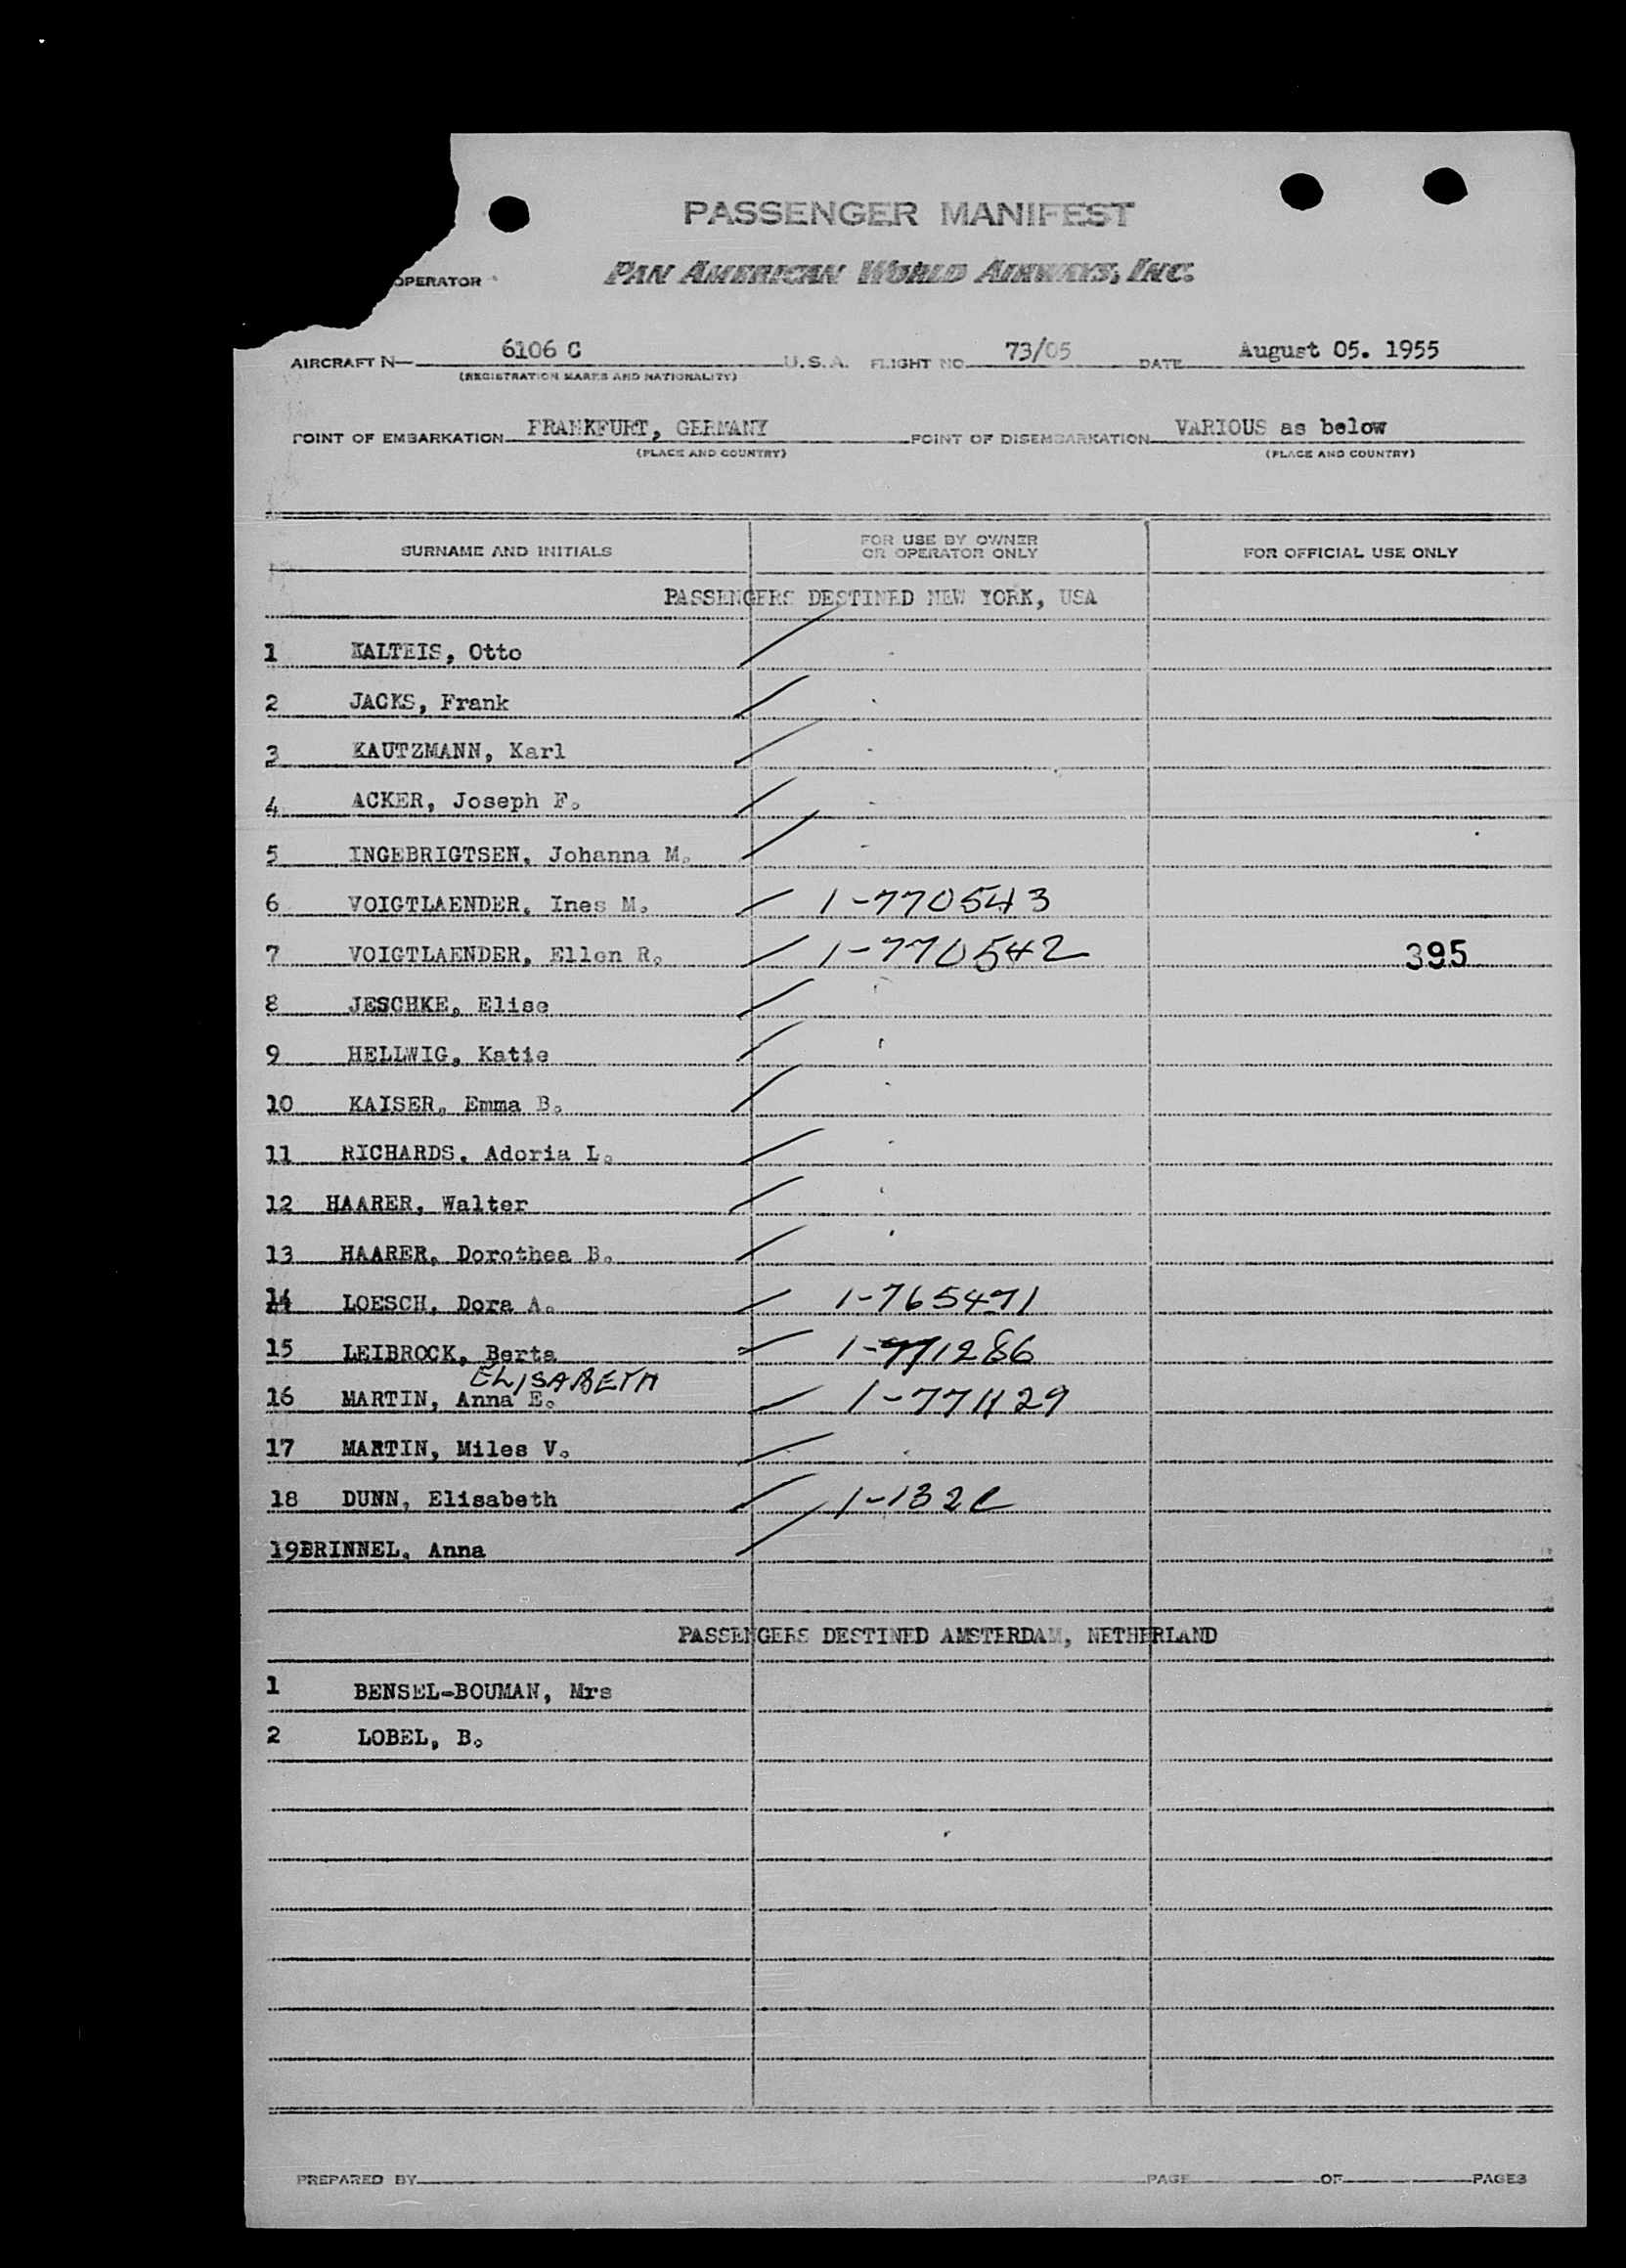 PASSENGER MANIFEST
OPERATOR PAN AMERICAN WORLD AIRWAYS, INC.
AIRCRAFT N— 6106 C U.S.A. FLIGHT NO. 73/05 DATE August 05. 1955
(REGISTRATION MARKS AND NATIONALITY)
POINT OF EMBARKATION FRANKFURT, GERMANY POINT OF DISEMBARKATION VARIOUS as below
(PLACE AND COUNTRY) (PLACE AND COUNTRY)
SURNAME AND INITIALS FOR USE BY OWNER OR OPERATOR ONLY FOR OFFICIAL USE ONLY
PASSENGERS DESTINED NEW YORK, USA
1 KALTEIS, Otto
2 JACKS, Frank
3 KAUTZMANN, Karl
4 ACKER, Joseph F.
5 INGEBRIGTSEN, Johanna M.
6 VOIGTLAENDER, Ines M. 1-770543
7 VOIGTLAENDER, Ellen R. 1-770542 395
8 JESCHKE, Elise
9 HELLWIG, Katie
10 KAISER, Emma B.
11 RICHARDS, Adoria L.
12 HAARER, Walter
13 HAARER, Dorothea B.
14 LOESCH, Dora A. 1-765471
15 LEIBROCK, Berta 1-771286
ELISABETH
16 MARTIN, Anna E. 1-771129
17 MARTIN, Miles V.
18 DUNN, Elisabeth
19BRINNEL, Anna
PASSENGERS DESTINED AMSTERDAM, NETHERLAND
1 BENSEL-BOUMAN, Mrs
2 LOBEL, B.
PREPARED BY PAGE OF PAGES